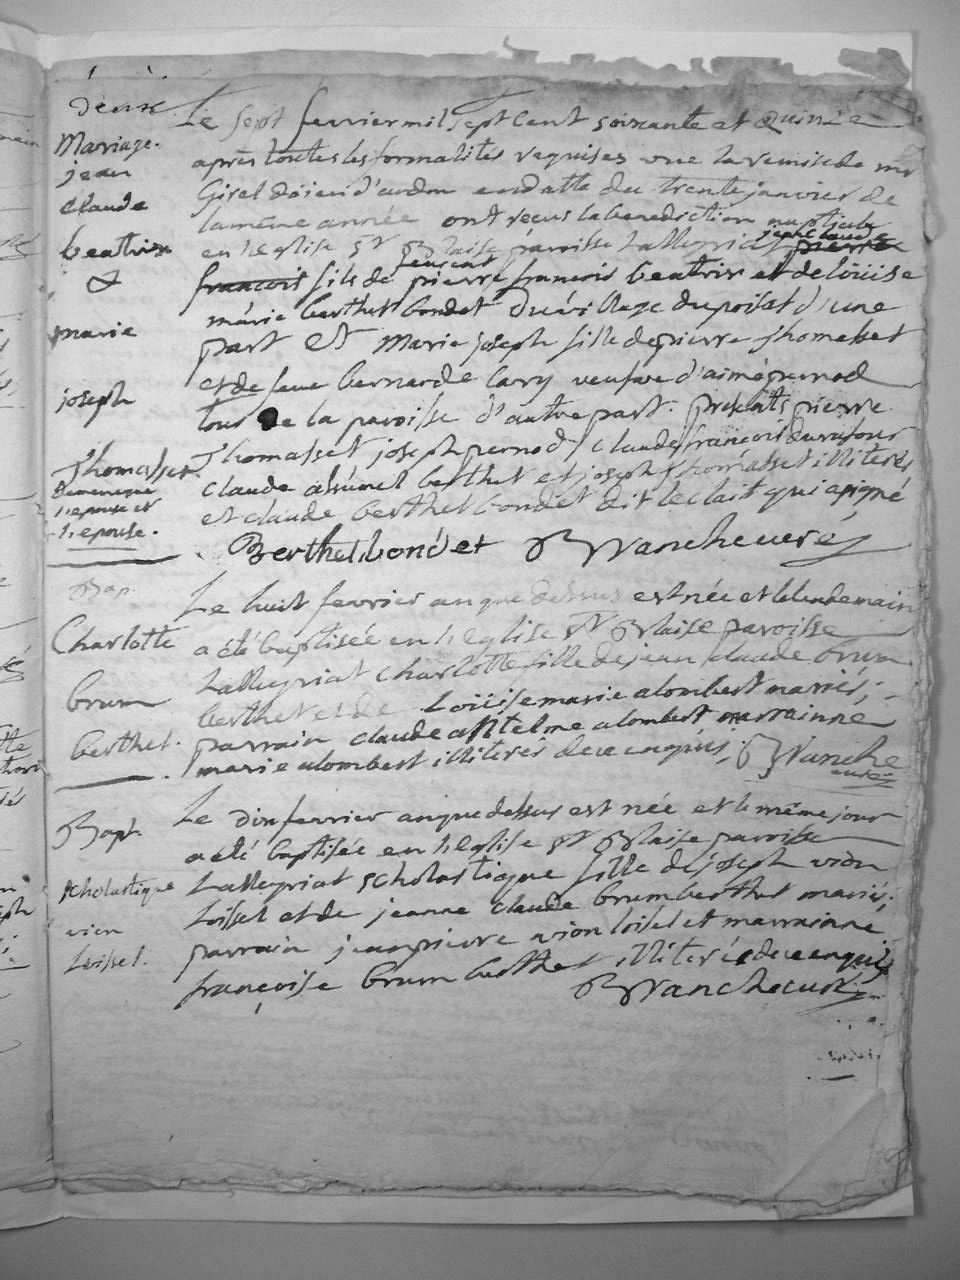 Mariage.
jean
Claude
beatrix
&
marie
joseph
Thomasset
Le sept fevrier mil sept cent soixante et quinze
après toutes les formalités requises vue la remise de mr
Girel doien d'ardon en datte du trente janvier de
la même année ont reçus la benediction nuptiale
en l'eglise St Blaise paroisse Lalleyriat jean claude pierre
francois fils de pierre francois beatrix et de loüise
marie berthet bondet du village du poisat d'une
part Et Marie joseph fille de pierre thomasset
et de feue bernarde larry veufve d'aimé pernod
tous de la paroisse d'autre part. presents pierre
Thomasset joseph pernod claude francois durafour
claude berthet et joseph thomasset illiterés
et claude berthet bondet dit leclait qui a signé
l'epouse.
Berthet bondet Blancheuré
Bap.
Charlotte
brun
berthet.
Le huit fevrier an que dessus est née et le lendemain
a été baptisée en l'eglise St Blaise paroisse
Lalleyriat Charlotte fille de jean claude brun
berthet et de Loüise marie alombert mariés;
parrain claude antelme alombert marrainne
marie alombert illiterés de ce enquis. Blanche
curé
Bapt.
scholastique
vion
Loisset.
Le dix fevrier an que dessus est née et le même jour
a été baptisée en l'eglise St Blaise paroisse
Lalleyriat scholastique fille de joseph vion
Loisset et de jeanne claude brun berthet mariés;
parrain jean pierre vion loiset et marrainne
françoise brun berthet illiterés de ce enquis
Blanche curé